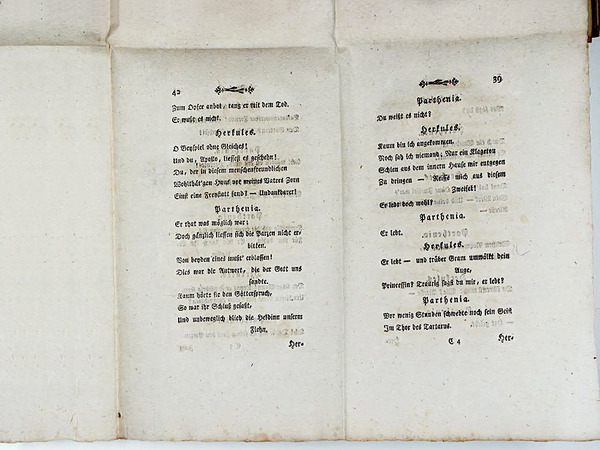 42
Zum Opfer anbot, rang er mit dem Tod.
Er wußt es nicht.
Herkules.
O Beyspiel ohne Gleiches!
Und du, Apollo, liessest es geschehn!
Du, der in diesem menschenfreundlichen
Wohlthät'gen Haus vor meines Vaters Zorn
Einst eine Freystatt fand! — Undankbarer!
Parthenia.
Er that was möglich war;
Doch gänzlich liessen sich die Parzen nicht er-
bitten.
Von beyden eines mußt' erblassen!
Dies war die Antwort, die der Gott uns
sandte.
Kaum hörte sie den Götterspruch,
So war ihr Schluß gefaßt,
Und unbeweglich blieb die Heldinn unserm
Flehn.
Her-
39
Parthenia.
Du weißt es nicht?
Herkules.
Kaum bin ich angekommen.
Noch sah ich niemand; Nur ein Klageton
Schien aus dem innern Hause mir entgegen
Zu dringen — Reisse mich aus diesem
Zweifel!
Er lebt doch wohl? —
Parthenia.
Er lebt.
Herkules.
Er lebt — und trüber Gram umwölkt dein
Auge,
Prinzessin? Traurig sagst du mir, er lebt?
Parthenia.
Vor wenig Stunden schwebte noch sein Geist
Im Thor des Tartarus.
C 4
Her-